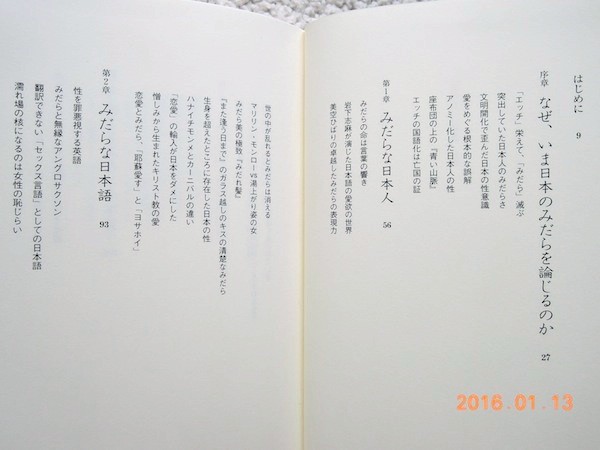 はじめに 9
序章 なぜ、いま日本のみだらを論じるのか 27
「エッチ」栄えて、「みだら」滅ぶ
突出していた日本人のみだらさ
文明開化で歪んだ日本の性意識
愛をめぐる根本的な誤解
アノミー化した日本人の性
座布団の上の『青い山脈』
エッチの国語化は亡国の証
第1章 みだらな日本人 56
みだらの命は言葉の響き
岩下志麻が演じた日本語の愛欲の世界
美空ひばりの卓越したみだらの表現力
世の中が乱れるとみだらは消える
マリリン・モンローvs湯上がり姿の女
みだら美の極致『みだれ髪』
『また逢う日まで』のガラス越しのキスの清楚なみだら
生身を超えたところに存在した日本の性
ハナイチモンメとカーニバルの違い
「恋愛」の輸入が日本をダメにした
憎しみから生まれたキリスト教の愛
恋愛とみだら、「耶蘇愛す」と「ヨサホイ」
第2章 みだらな日本語 93
性を罪悪視する英語
みだらと無縁なアングロサクソン
翻訳できない「セックス言語」としての日本語
濡れ場の核になるのは女性の恥じらい
2016.01.13